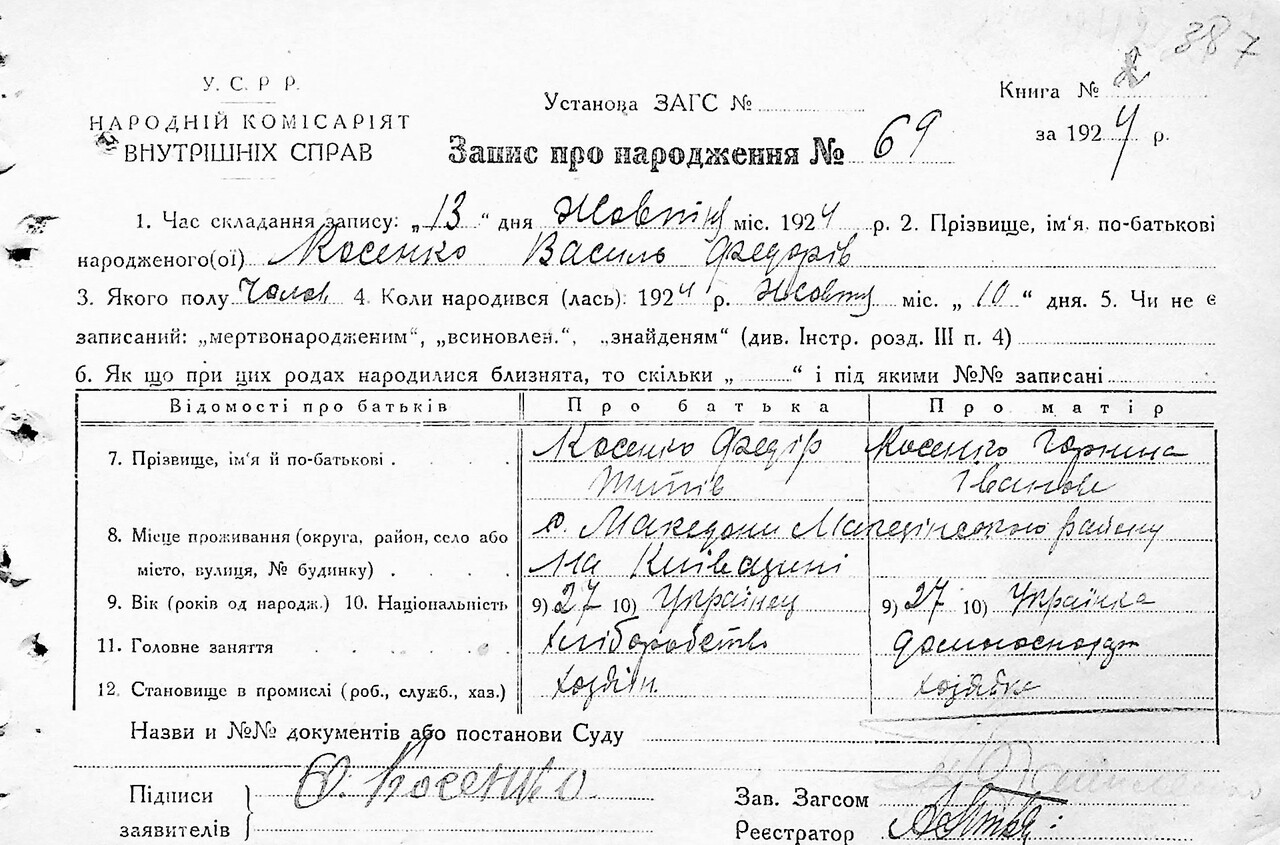 387
У. С. Р Р.
НАРОДНІЙ КОМІСАРІЯТ
ВНУТРІШНІХ СПРАВ
Установа ЗАГС №
Книга №
за 1924 р.
Запис про народження № 69
1. Час складання запису: „13“ дня Жовтня міс. 1924 р. 2. Прізвище, ім'я, по-батькові
народженого(ої) Косенко Василь Федорів
3. Якого полу Чолов 4. Коли народився (лась) 1924 р. Жовтня міс. „10“ дня. 5. Чи не є
записаний: „мертвонародженим“, „всиновлен.“, „знайденям“ (див. Інстр. розд. III п. 4)
6. Як що при цих родах народилися близнята, то скільки „ “ і під якими №№ записані
Відомості про батьків Про батька Про матір
7. Прізвище, ім'я й по-батькові Косенко Федір Косенко
Іванов
8. Місце проживання (округа, район, село або с. Македони Македонського району
місто, вулиця, № будинку) на Київщині
9. Вік (років од народж.) 10. Національність 9) 27 10) Українец 9) 27 10) Українка
11. Головне заняття хліборобство домогосподар
12. Становище в промислі (роб., служб., хаз.) хозяін. хозяйка
Назви и №№ документів або постанови Суду
Підписи Ф. Косенко
заявителів
Зав. Загсом
Реєстратор